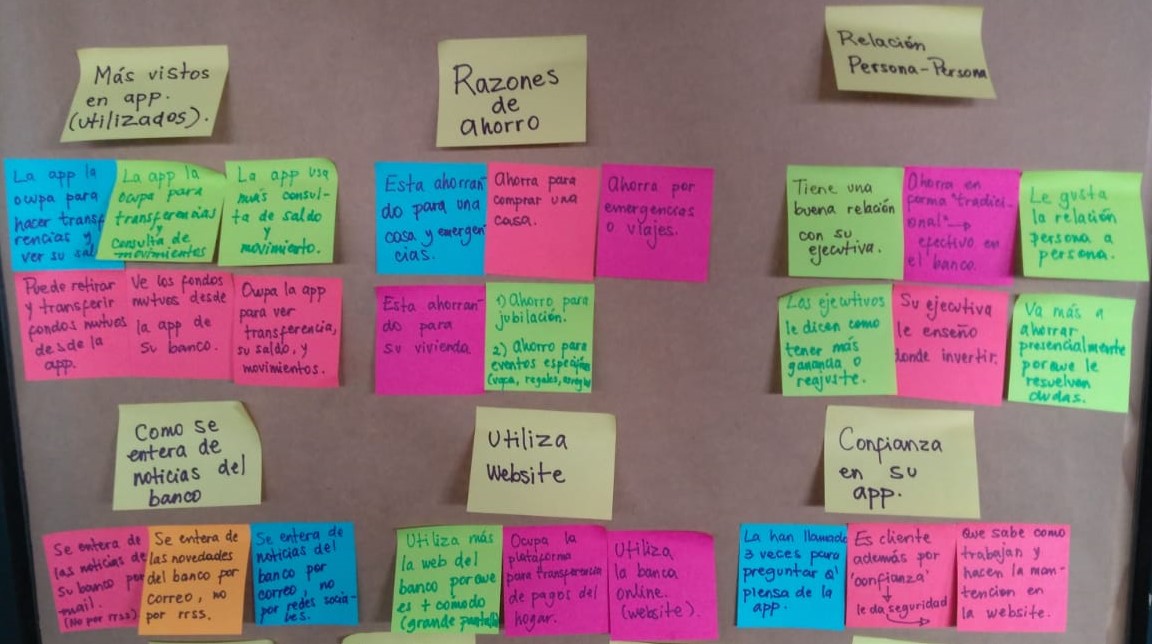 Más vistos
en app.
(utilizados).
La app la
ocupa para
hacer transf
rencias y
ver su sal
La app la
ocupa para
transferencias
y
consulta de
movimientos
La app usa
más consul-
ta de saldo
y
movimiento.
Puede retirar
y transferir
fondos mutuos
desde la
app.
Ve los fondos
mutuos desde
la app de
su banco.
Ocupa la app
para ver
transferencia,
su saldo, y
movimientos.
Razones
de
ahorro
Esta ahorran
do para una
casa y emergen
cias.
Ahorra para
comprar una
casa.
Ahorra por
emergencias
o viajes.
Esta ahorran
do para
su vivienda
1) Ahorro para
jubilación.
2) Ahorro para
eventos
(vaca, regalos,
Relación
Persona-Persona
Tiene una
buena relación
con su
ejecutiva.
Ahorra en
forma "tradici-
onal" →
efectivo en
el banco.
Le gusta
la relación
persona a
persona.
Los ejecutivos
le dicen como
tener más
ganancia o
reajuste.
Su ejecutiva
le enseño
donde invertir.
Va más a
ahorrar
presencialmente
porque le
resuelven
dudas.
Como se
entera de
noticias del
banco
Se entera de
las noticias de
su banco por
mail.
(No por rrss)
Se entera de
las novedades
del banco por
correo, no
por rrss.
Se entera de
noticias del
banco por
correo, no
por redes socia-
les.
Utiliza
Website
Utiliza más
la web del
banco porque
es + comodo
(grande pantalla
Ocupa la
plataforma
para transferencia
de pagos del
hogar.
Utiliza
la banca
online.
(website).
Confianza
en su
app.
La han llamado
3 veces para
preguntar q'
piensa de la
app.
Es cliente
además por
'confianza'
↓
le da seguridad
Que sabe como
trabajan y
hacen la man-
tencion en
la website.